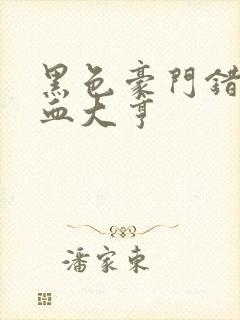 黑色豪門錯
血大亨
潘家東